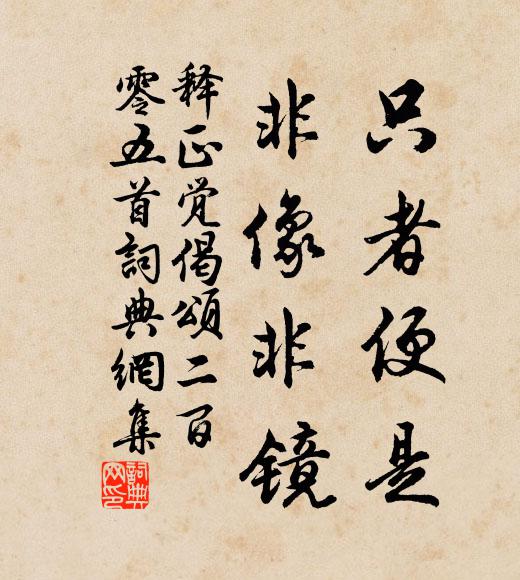 只者便是
非像非镜
释正觉偈颂二百
零五首詞典網集
詞典網印